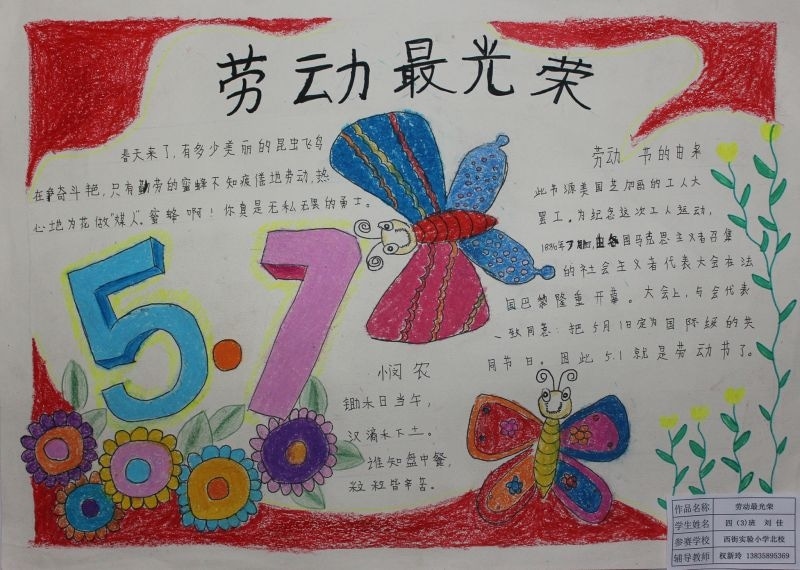 劳动最光荣
春天来了，有多少美丽的昆虫飞鸟
在争奇斗艳，只有勤劳的蜜蜂不知疲倦地劳动，热
心地为花做“媒人”。蜜蜂啊！你真是无私无畏的勇士。
5·1
劳动 节的由来
此节源美国芝加哥的工人大
罢工。为纪念这次工人运动，
1886年7月，由各国马克思主义者召集
的社会主义者代表大会在法
国巴黎隆重开幕。大会上，与会代表
一致同意：把5月1日定为国际级的共
同节日。因此5.1就是劳动节了。
悯农
锄禾日当午，
汉滴禾下土。
谁知盘中餐，
粒粒皆辛苦。
作品名称 劳动最光荣
学生姓名 四（3）班 刘佳
参赛学校 西街实验小学北校
辅导教师 权新玲 13835895369